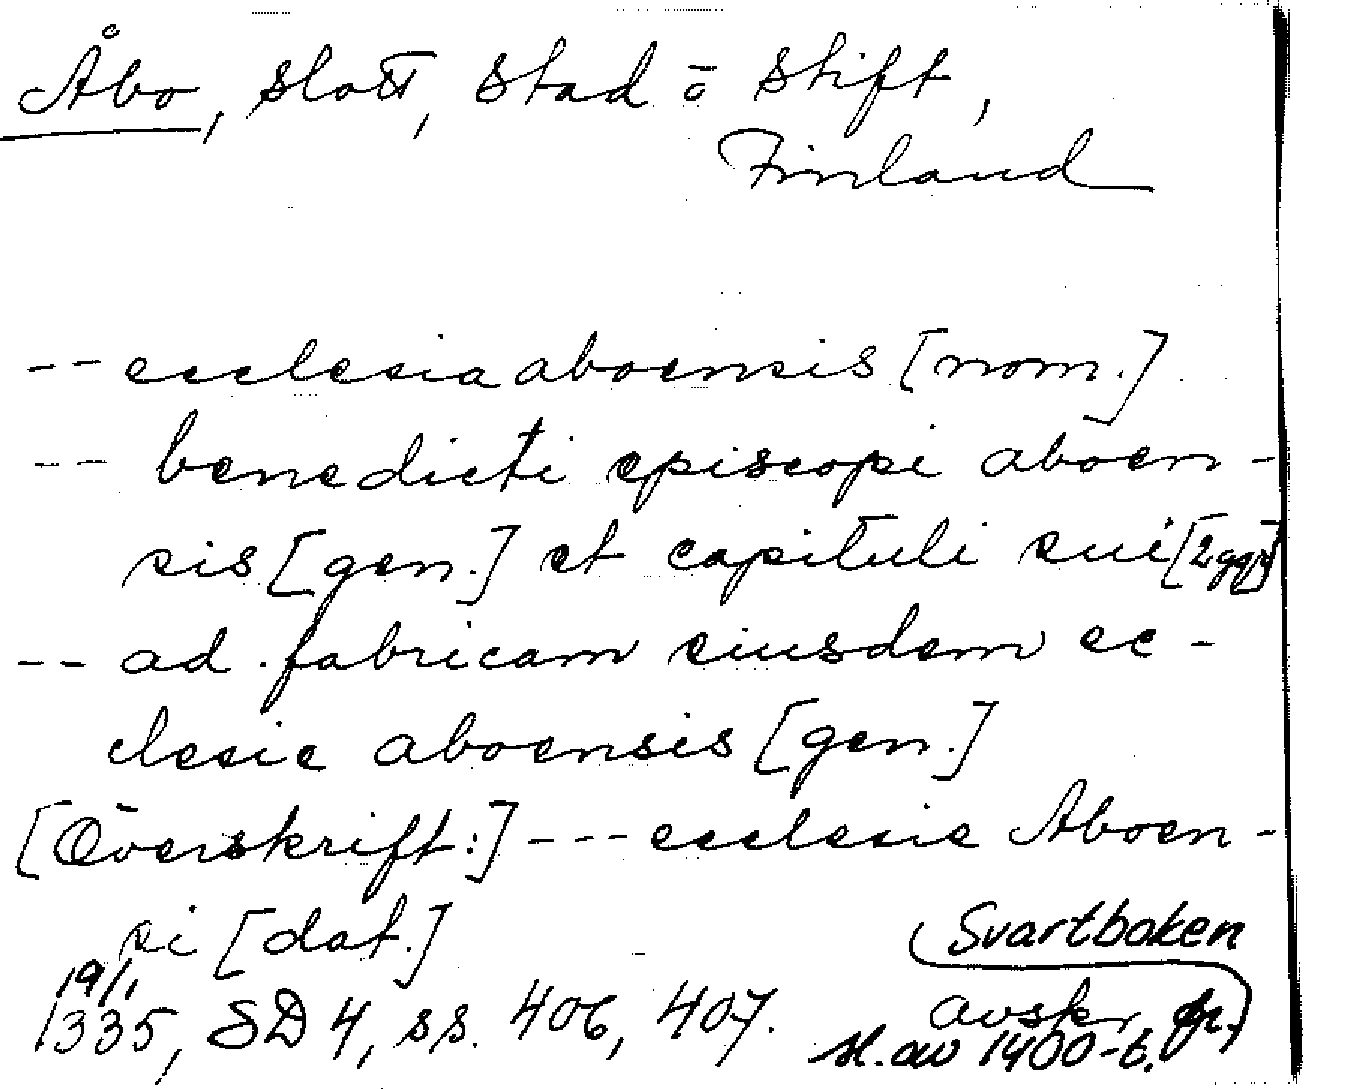 Åbo, slott, stad ō stift,
Finland
-- ecclesia aboensis [nom.]
-- benedicti episcopi aboen-
sis [gen.] et capituli sui [2 ggr]
-- ad fabricam eiusdem ec-
clesie aboensis [gen.]
[Överskrift:] --- ecclesie Aboen-
si [dat.]
19/1
1335, SD 4, ss. 406, 407.
Svartboken
avskr. fr.
sl. av 1400-t.